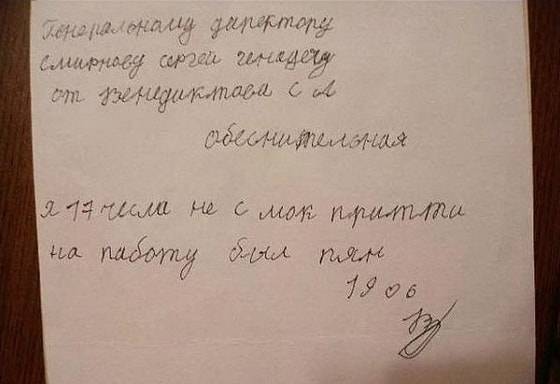 Генеральному директору
Смирнову сергей генадечу
от Венедиктова С А
обеснительная
Я 17 числа не с мок притти
на паботу был пян
19 06